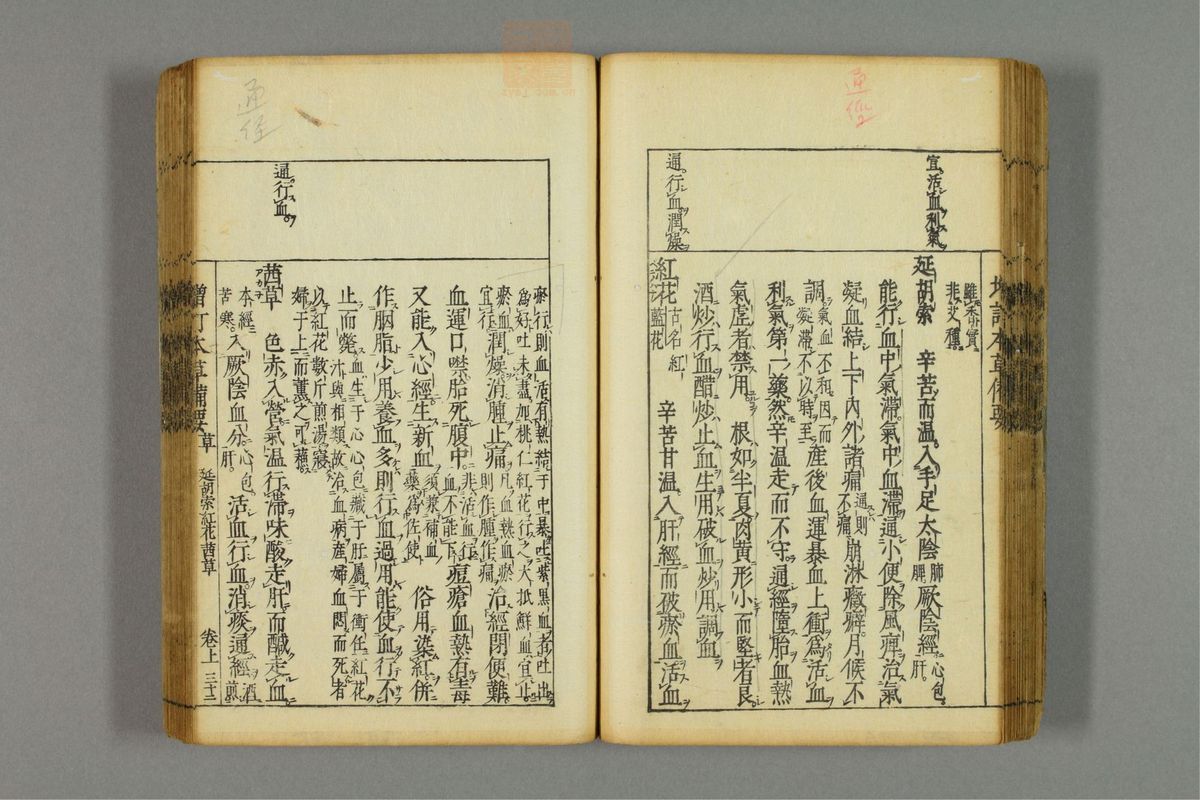 通
經
宜活血利氣
通行血潤燥
增訂本草備要
雖香實
非艾種
延胡索 辛苦而温入手足太陰肺脾厥陰經心包肝
能行血中氣滯氣中血滯通小便除風痺治氣
凝血結上下內外諸痛通則不痛崩淋癥癖月候不
調氣血不和因而凝滯不以時至產後血運暴血上衝為活血
利氣第一藥然辛温走而不守通經墮胎血熱
氣虛者禁用 根如半夏肉黄形小而堅者良
酒炒行血醋炒止血生用破血炒用調血
紅花古名紅藍花 辛苦甘温入肝經而破瘀血活血
通
經
通行血
瘀行則血活有熱結于中暴吐紫黑血者吐出
為好吐未盡加桃仁紅花行之大抵鮮血宜止
瘀血宜行潤燥消腫止痛凡血熱血瘀則作腫作痛治經閉便難
血運口噤胎死腹中非活血行血不能下痘瘡血熱有毒
又能入心經生新血須兼補血藥為佐使 俗用染紅併
作胭脂少用養血多則行血過用能使血行不
止而斃血生于心心包藏于肝屬于衝任紅花汁與相類故治血病產婦血悶而死者
以紅花數斤煎湯寢
婦于上而薰之可蘇
茜草アカネ 色赤入營氣温行滯味酸走肝而鹹走血
本經苦寒入厥陰血分心包肝 活血行血消瘀通經酒煎
增訂本草備要 草 延胡索紅花茜草 卷上 三十二